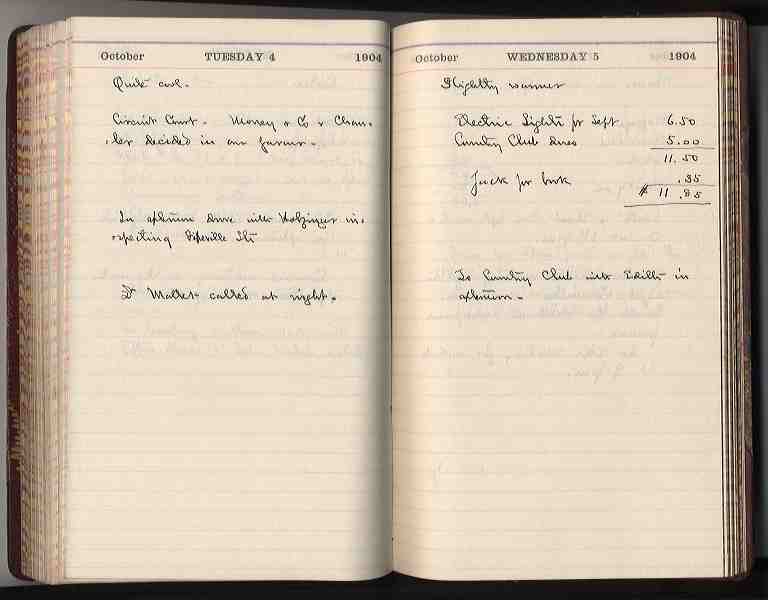 October TUESDAY 4 1904
Quite cool.
Circuit Court. Money & Co v Chan-
cler decided in our favour.
In afternoon drove with Holzinger in-
specting Pikeville Sts
Dr Mallet called at night.
October WEDNESDAY 5 1904
Slightly warmer
Electric Lights for Sept. 6.50
Country Club dues 5.00
11.50
Jack for book .35
$ 11.85
To Country Club with Edith in
afternoon.